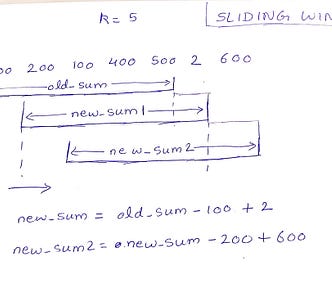 K = 5
SLIDING WIN
00 200 100 400 500 2 600
old_sum
new_sum1
new_sum2
new_sum = old_sum - 100 + 2
new_sum2 = new_sum - 200 + 600